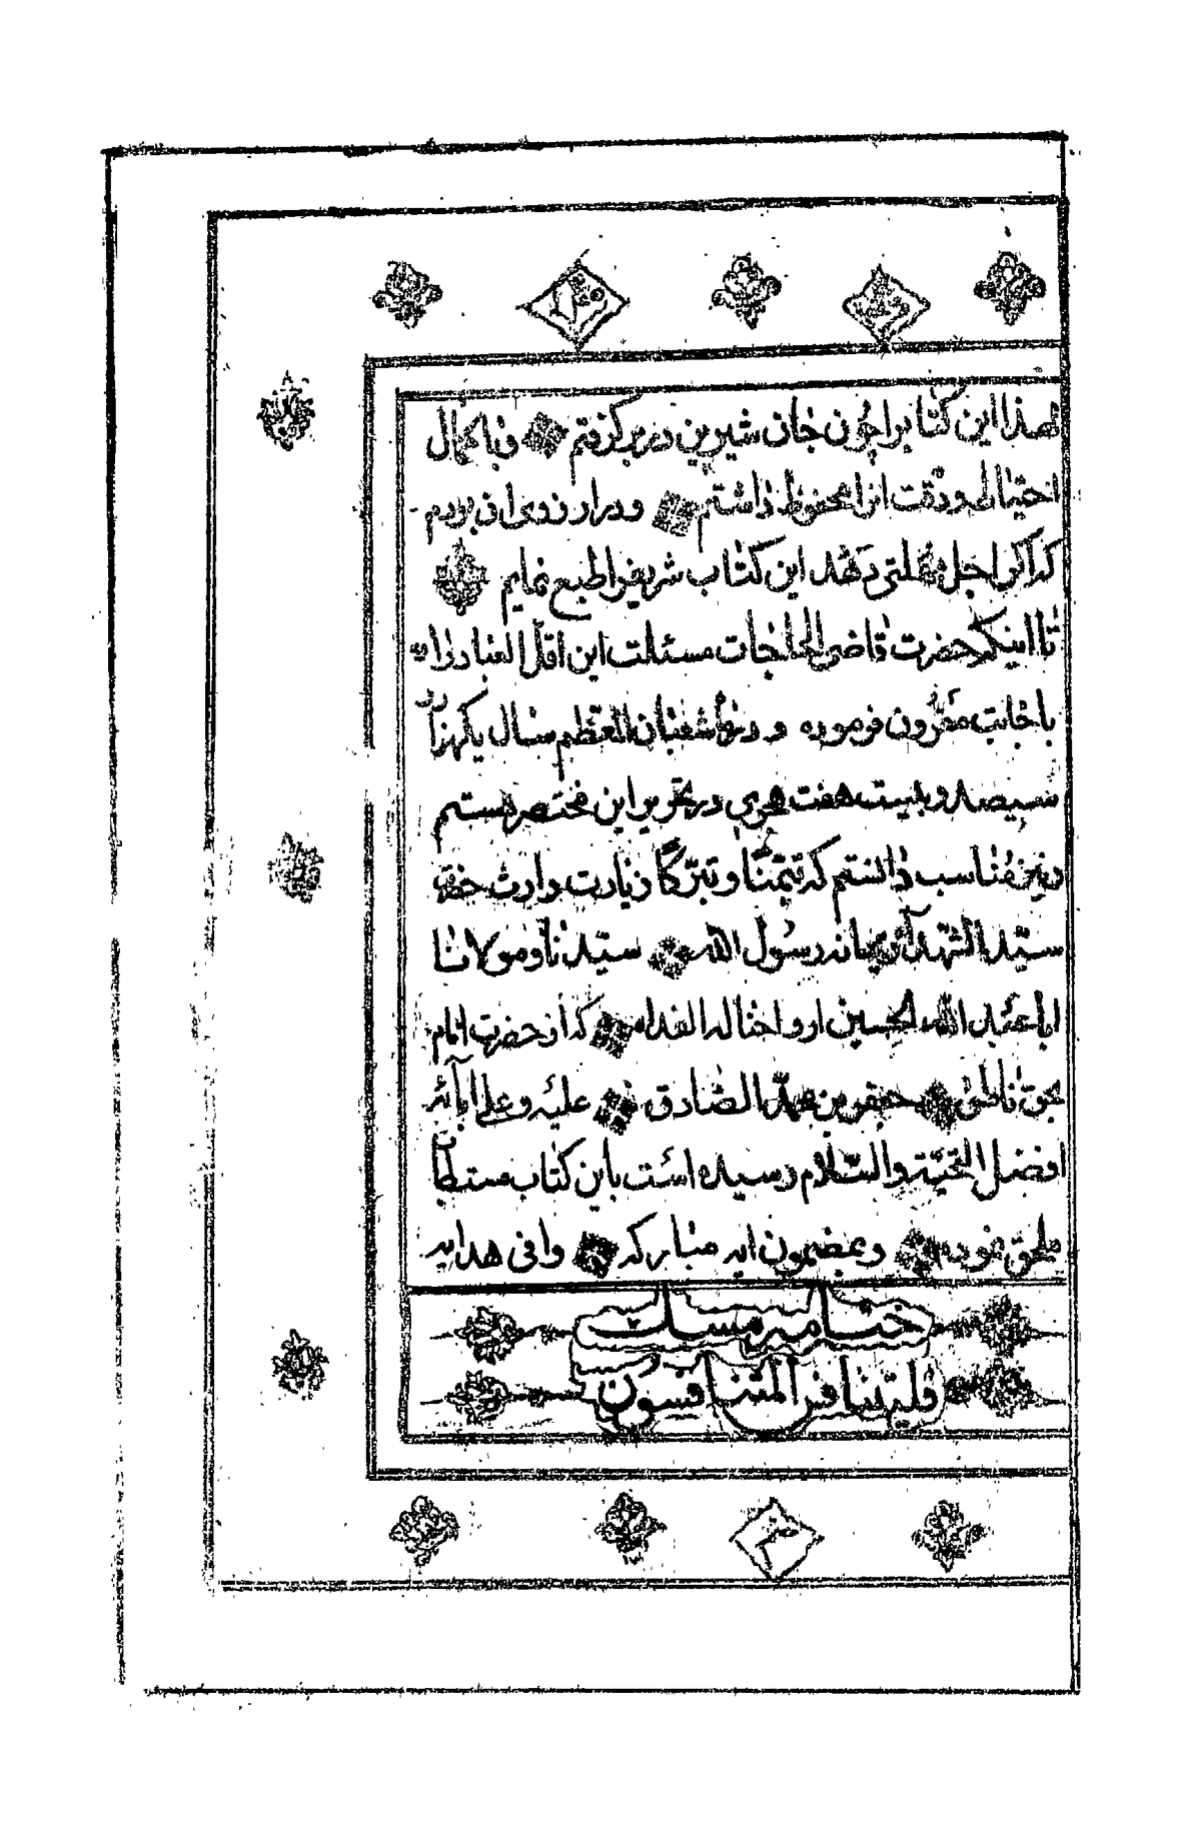 لهذا این کتابرا چون جان شیرین در بر گرفتم و با کمال
احتیاط و دقت انرا محفوظ داشتم و در ارزوی ان بودم
که اگر اجل مهلتی دهد این کتاب شریفرا طبع نمایم
تا اینکه حضرت قاضی الحاجات مسئلت این اقل العباد را
باجابت مقرون فرموده و در شعبان المعظم سال یکهزار
سیصد و بیست هفت هجری در تحریر این مختصر هستم
و نیز مناسب دانستم که تیمّنا و تبرّکا زیارت وارث حضرت
سیّد الشهدآء ریحانه رسول اللّه سیّدنا و مولانا
ابا عبد اللّه الحسین ارواحنا له الفداه که از حضرت امام
بحق ناطق جعفر بن محمّد الصّادق علیه و علی ابآئه
افضل التحیّة والسّلام رسیده است باین کتاب مستطاب
ملحق نموده و بمضمون ایه مبارکه وافی هدایه
ختامه مسك
فلیتنافس المتنافسون